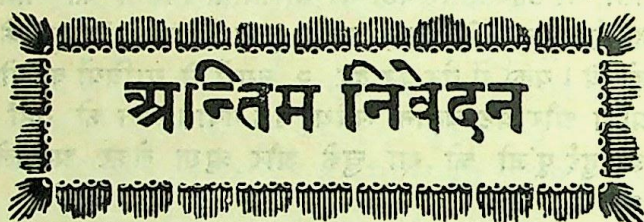 अन्तिम निवेदन